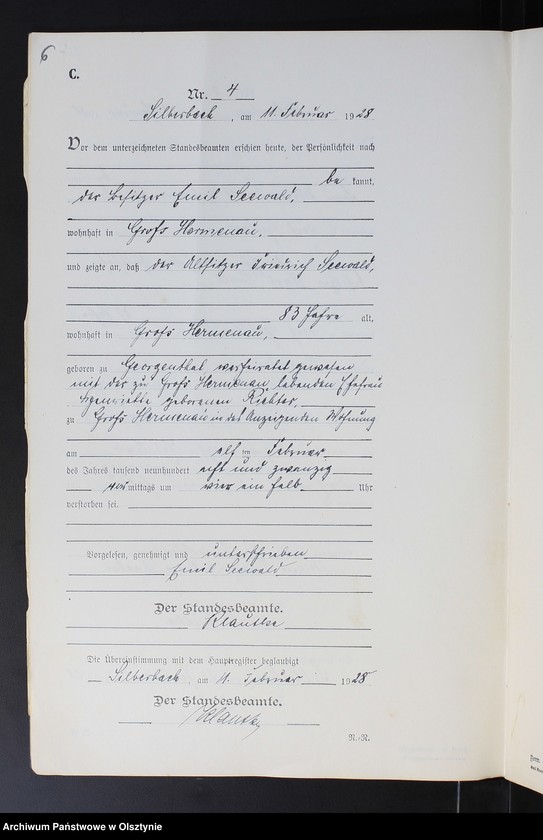 6
C.
Nr. 4
Silberbach, am 11. Februar 1928
Vor dem unterzeichneten Standesbeamten erschien heute, der Persönlichkeit nach
be kannt,
der Besitzer Emil Seewald,
wohnhaft in Groß Hermenau,
und zeigte an, daß der Altsitzer Friedrich Seewald,
83 Jahre alt,
wohnhaft in Groß Hermenau,
geboren zu Georgenthal verheiratet gewesen
mit der zu Groß Hermenau lebenden Ehefrau
Henriette geborenen Richter,
zu Groß Hermenau in des Anzeigenden Wohnung
am elften Februar
des Jahres tausend neunhundert acht und zwanzig
vormittags um vier ein halb Uhr
verstorben sei.
Vorgelesen, genehmigt und unterschrieben
Emil Seewald
Der Standesbeamte.
Klautke
Die Übereinstimmung mit dem Hauptregister beglaubigt
Silberbach, am 11. Februar 1928
Der Standesbeamte.
Klautke
N.-R.
Archiwum Państwowe w Olsztynie